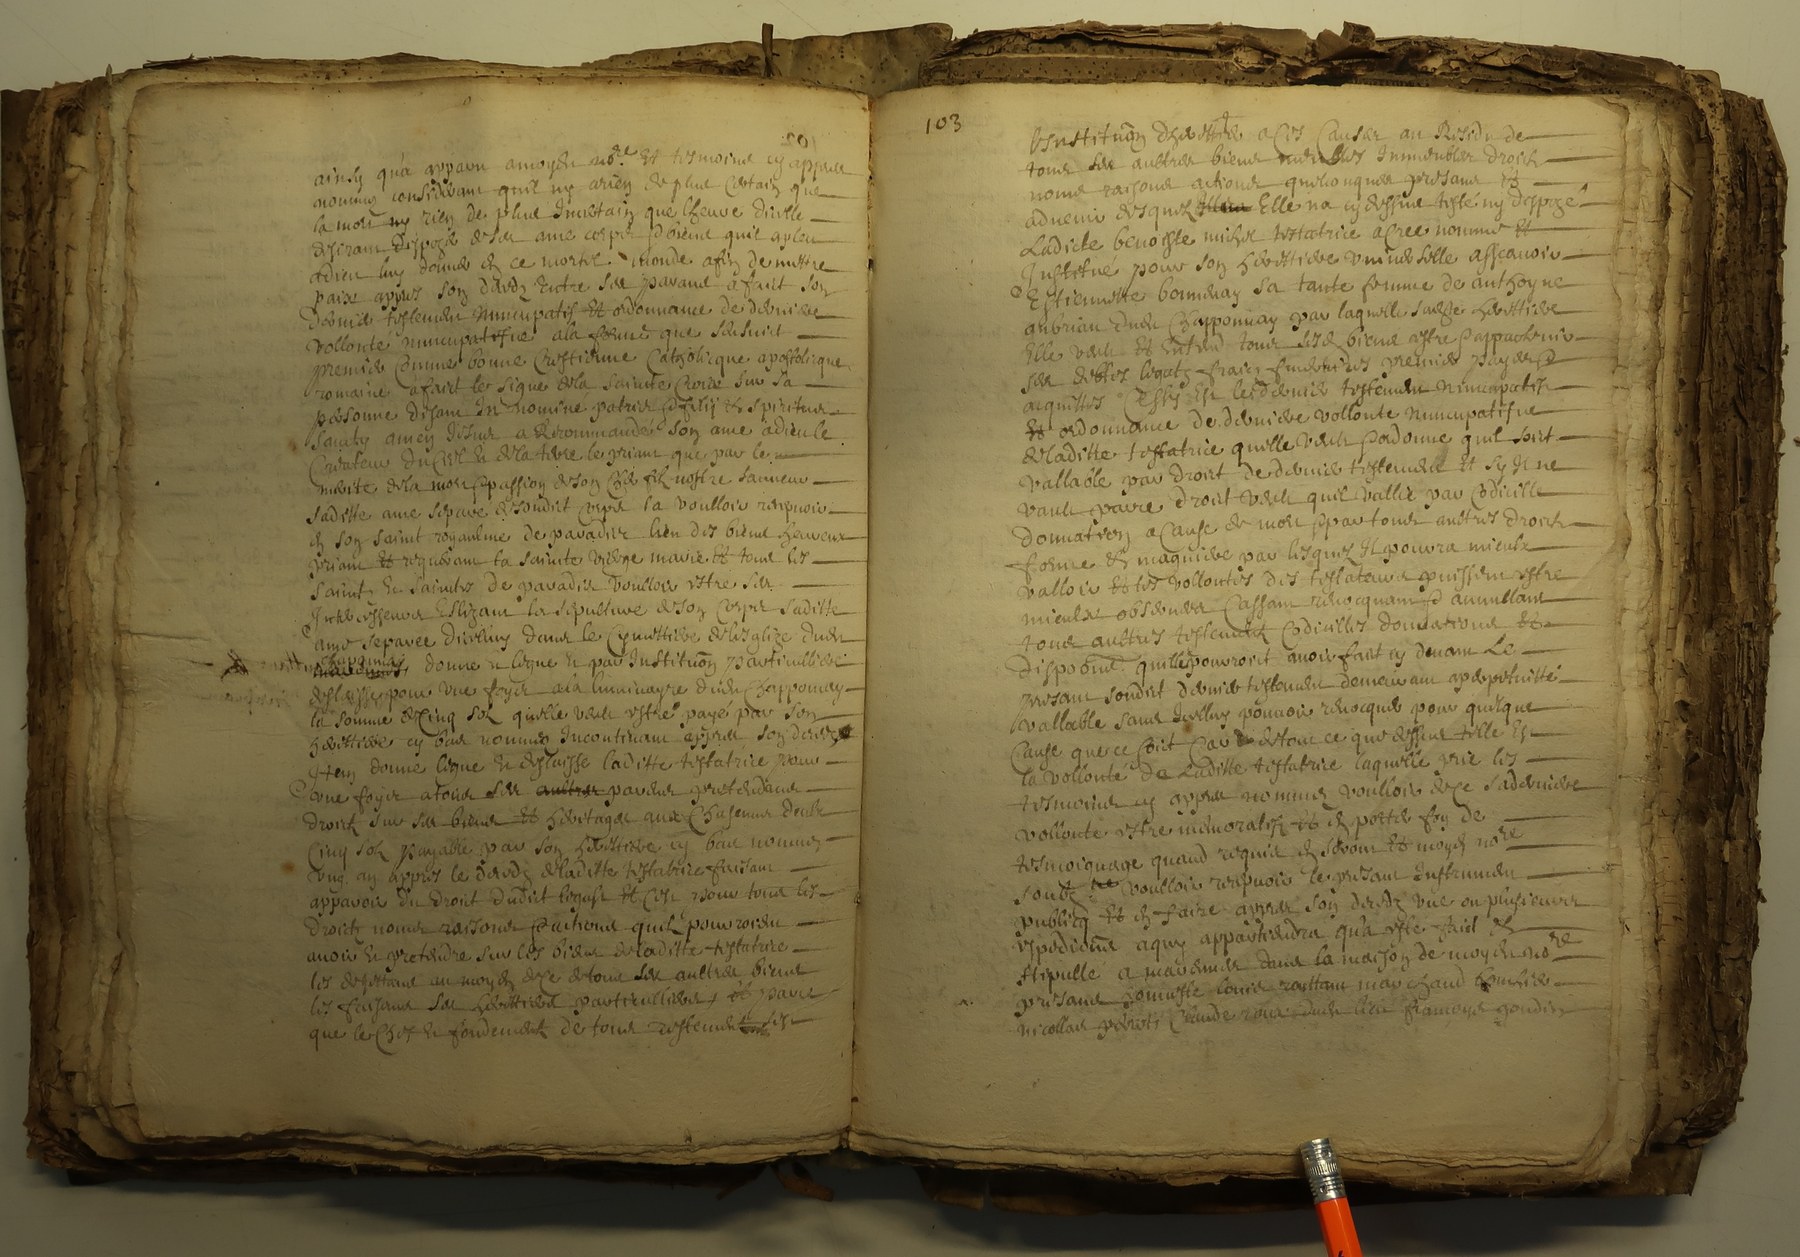 ainsy qua apparu a moydit no.re Et tesmoins cy appres
nommes considerant quil ny a rien de plus Certain que
la mort ny rien de plus Incertain que lheure dicelle
desirant disposer de ses ame corps & biens quil a pleu
a dieu luy donner en ce mortel monde affin de mettre
paix appres son deces Entre ses parans a faict son
dernier testement nuncupatif Et ordonnance de derniere
vollonte nuncupatifue a la forme que sensuict
premier Comme bonne Crestienne Catholicque apostolicque
romaine a faict le signe de la saincte Croix sur sa
personne disant In nomine patris & filij & spiritus
sancty amen Jesus a Recommandé son ame a dieu le
Createur du Ciel et de la terre le priant que par le
merite de la mort & passion de son Cher filz nostre sauueur
saditte ame separe de sondict corps la voulloir recepuoir
en son sainct royaulme de paradis lieu des biens heureux
priant Et requerant la saincte vierge marie Et tous les
saincts et sainctes de paradis voulloir estre ses
Intercesseurs Eslizant la sepulture de son corps saditte
ame separee dicelluy dans le Cymettiere de lesglize dudit
Chapponnay donne et legue et par Institution particulliere
deslaisse pour vne foys a la luminayre dudit Chapponnay
la somme de Cinq solz quelle veult estre payé par son
herittiere cy bas nommee Incontinant appres son deces
Item donne legue et deslaisse laditte testatrice pour
vne foys a tous ses aultres parans pretendans
droict sur ses biens Et heritages aux Chascuns deulx
Cinq solz payable par son herittiere cy bas nommee
vng an appres le deces de laditte testatrice faisant
apparoir du droict dudict legat Et Cest pour tous les
droictz noms raisons & actions quilz pourroient
auoir et pretendre sur les biens de laditte testatrice
les dejettant au moyen de ce de tous ses aultres biens
les faisant ses herittiers particulliers Et parce
que le Chef et fondement de tous testement est
103
lInstitution dherittier a Ces Causes au Residu de
tous ses aultres biens meubles Immeubles droictz
noms raisons actions quelconques presans Et
aduenir desquelz Elle na cy dessus teste ny disposé
Ladicte benoiste michel testatrice a Cree nomme Et
Institué pour son herittiere vniuerselle asscauoir
Estiennette bonnenay sa tante femme de anthoyne
aubrian dudit Chapponnay par laquelle sadite herittiere
Elle veult Et Entend tous sesd biens estre & appartenir
ses debtes legatz fraiz funeraires premier payes &
acquittes Cest Est le dernier testement nuncupatif
Et ordonnance de derniere vollonte nuncupatifue
de laditte testatrice quelle veult & ordonne quil soict
vallable par droict de dernier testement Et sy Il ne
vault par ce droict veult quil vallie par Codicille
donnation a Cause de mort & par tous aultres droictz
forme Et maguiere par lesquelz Il pourra mieulx
valloir Et les vollontes des testateurs puissent estre
mieulx obseruer Cassant reuocquant & annullant
tous aultres testementz Codicilles donnations Et
disposions quelle pourroit auoir faict cy deuant Le
presant sondict dernier testement demeurant a perpetuitté
vallable sans Icelluy pouuoir reuocquer pour quelque
Cause que ce soict Car de tout ce que dessus telle Est
la vollonte de Laditte testatrice laquelle prie les
tesmoins cy appres nommes voulloir de Ce sa derniere
vollonte estre memoratifz Et en porter foy de
tesmoignage quand requis en seront Et moydit no.re
soubz.ne voulloir recepuoir le presant Instrument
publicq Et en faire appres son deces vne ou plusieurs
expedions a quy appartiendra qua este faict Et
stipulle a marennes dans la maison de moydit no.re
presans honneste louis rousttain marchand honneste
nicollas perrot Claude roux dudit lieu francoys goudin